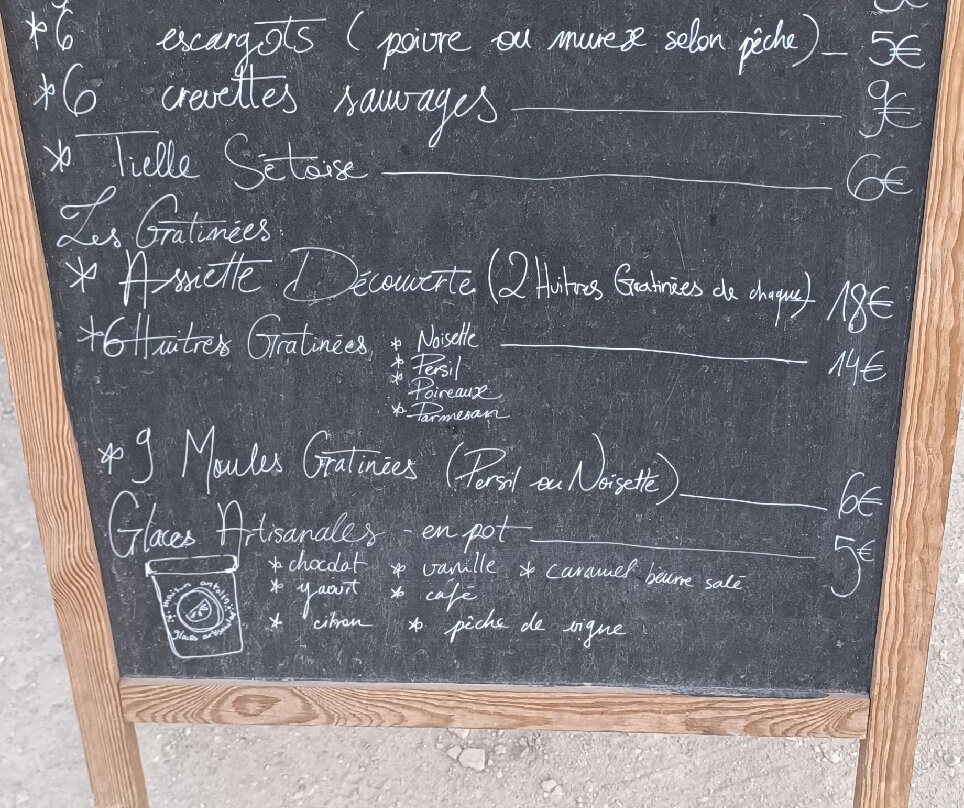 *6 escargots (poivre ou murex selon pêche) _ 5€
*6 crevettes sauvages 9€
* Tielle Sétoise 6€
Les Gratinées
* Assiette Découverte (2 Huitres Gratinées de chaque) 18€
*6 Huitres Gratinées * Noisette 14€
* Persil
* Poireaux
* Parmesan
* 9 Moules Gratinées (Persil ou Noisette) 6€
Glaces Artisanales - en pot 5€
* chocolat * vanille * caramel beurre salé
* yaourt * café
* citron * pêche de vigne
maison antolin
glaces artisanales